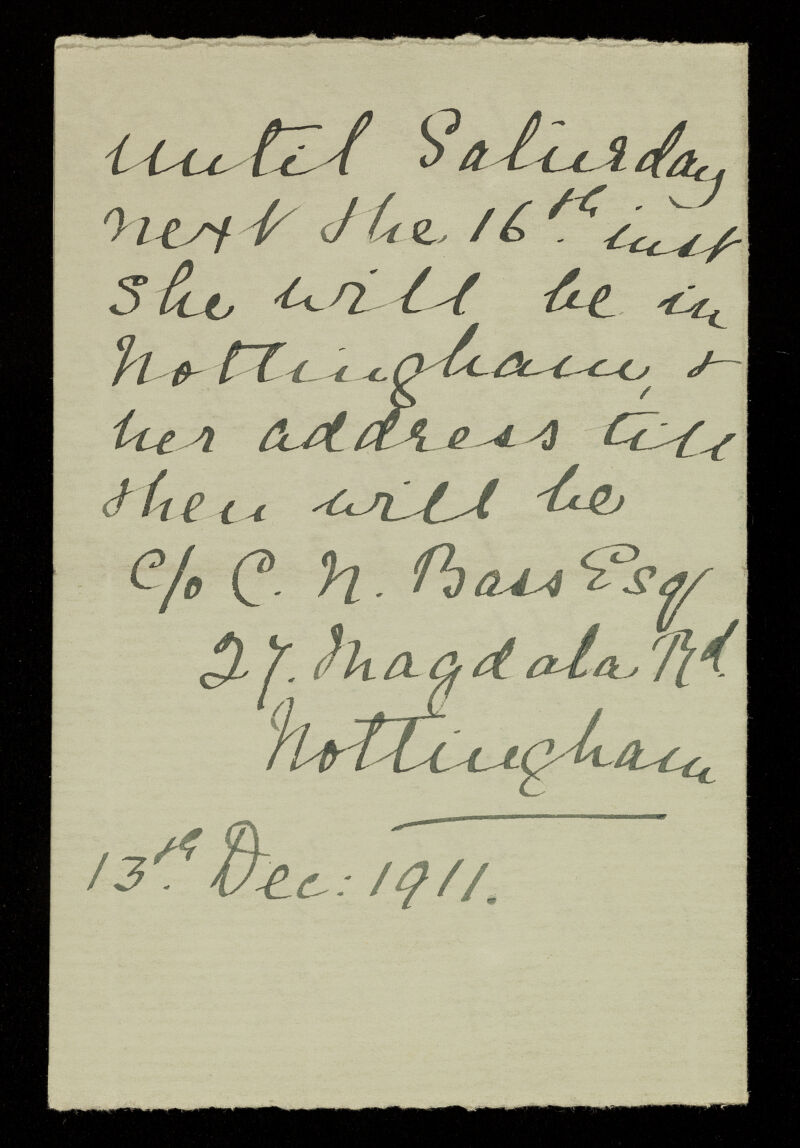 until Saturday
next the 16th. inst
she will be in
Nottingham, &
her address till
then will be
c/o C. N. Bass Esq
27. Magdala Rd.
Nottingham
13th. Dec: 1911.